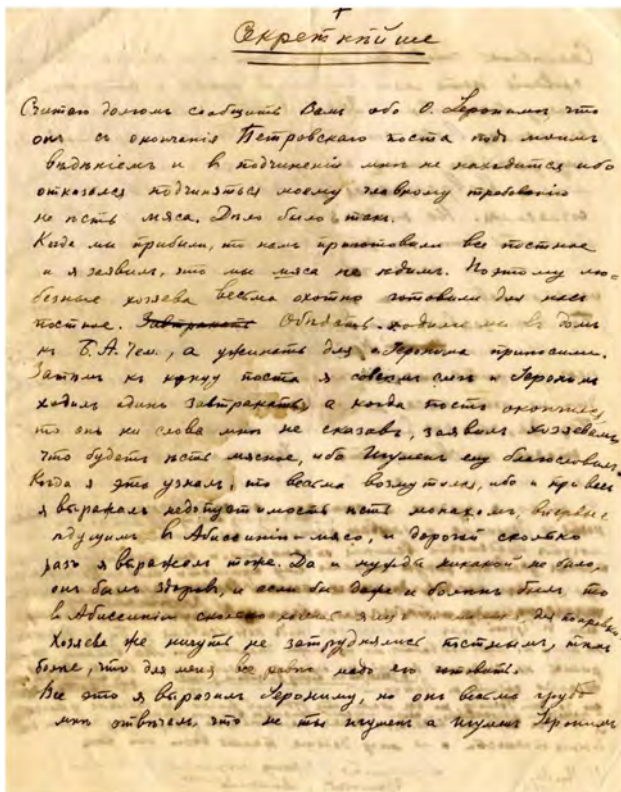 Секретнѣйше
Считаю долгомъ сообщить Вамъ обо О. Іеронимѣ что
онъ съ окончанія Петровскаго поста подъ моимъ
вѣдѣніемъ и в подчиненіи мнѣ не находится ибо
отказался подчиняться моему главному требованію
не ѣсть мяса. Дѣло было такъ.
Когда мы прибыли, то намъ приготовили все постное
и я заявилъ, что мы мяса не ѣдимъ. Поэтому лю-
безные хозяева весьма охотно готовили для насъ
постное. Завтракать Обѣдать ходили мы в домъ
къ Б. А. Чем., а ужинать для о Іеронима приносили.
Затѣмъ къ концу поста я совсѣмъ и Іеронимъ
ходилъ одинъ завтракать, а когда постъ окончился,
то онъ ни слова мнѣ не сказавъ, заявилъ хозяевамъ
что будетъ ѣсть мясное, ибо Игуменъ ему благословилъ.
Когда я это узналъ, то весьма возмутился, ибо и при всѣхъ
я выражалъ недопустимость ѣсть монахомъ, впервые
ѣдущимъ в Абиссинію мясо, и дорогой сколько
разъ я выражалъ тоже. Да и нужды никакой не было,
онъ былъ здоровъ, и если бы даже и боленъ былъ то
в Абиссиніи сколько для поправки
Хозяева же ничуть не затруднялись постнымъ, тѣмъ
болѣе, что для меня все равно надо его готовить.
Все это я выразилъ Іерониму, но онъ весьма грубо
мнѣ отвѣчалъ, что не ты игуменъ а игуменъ Іеронимъ